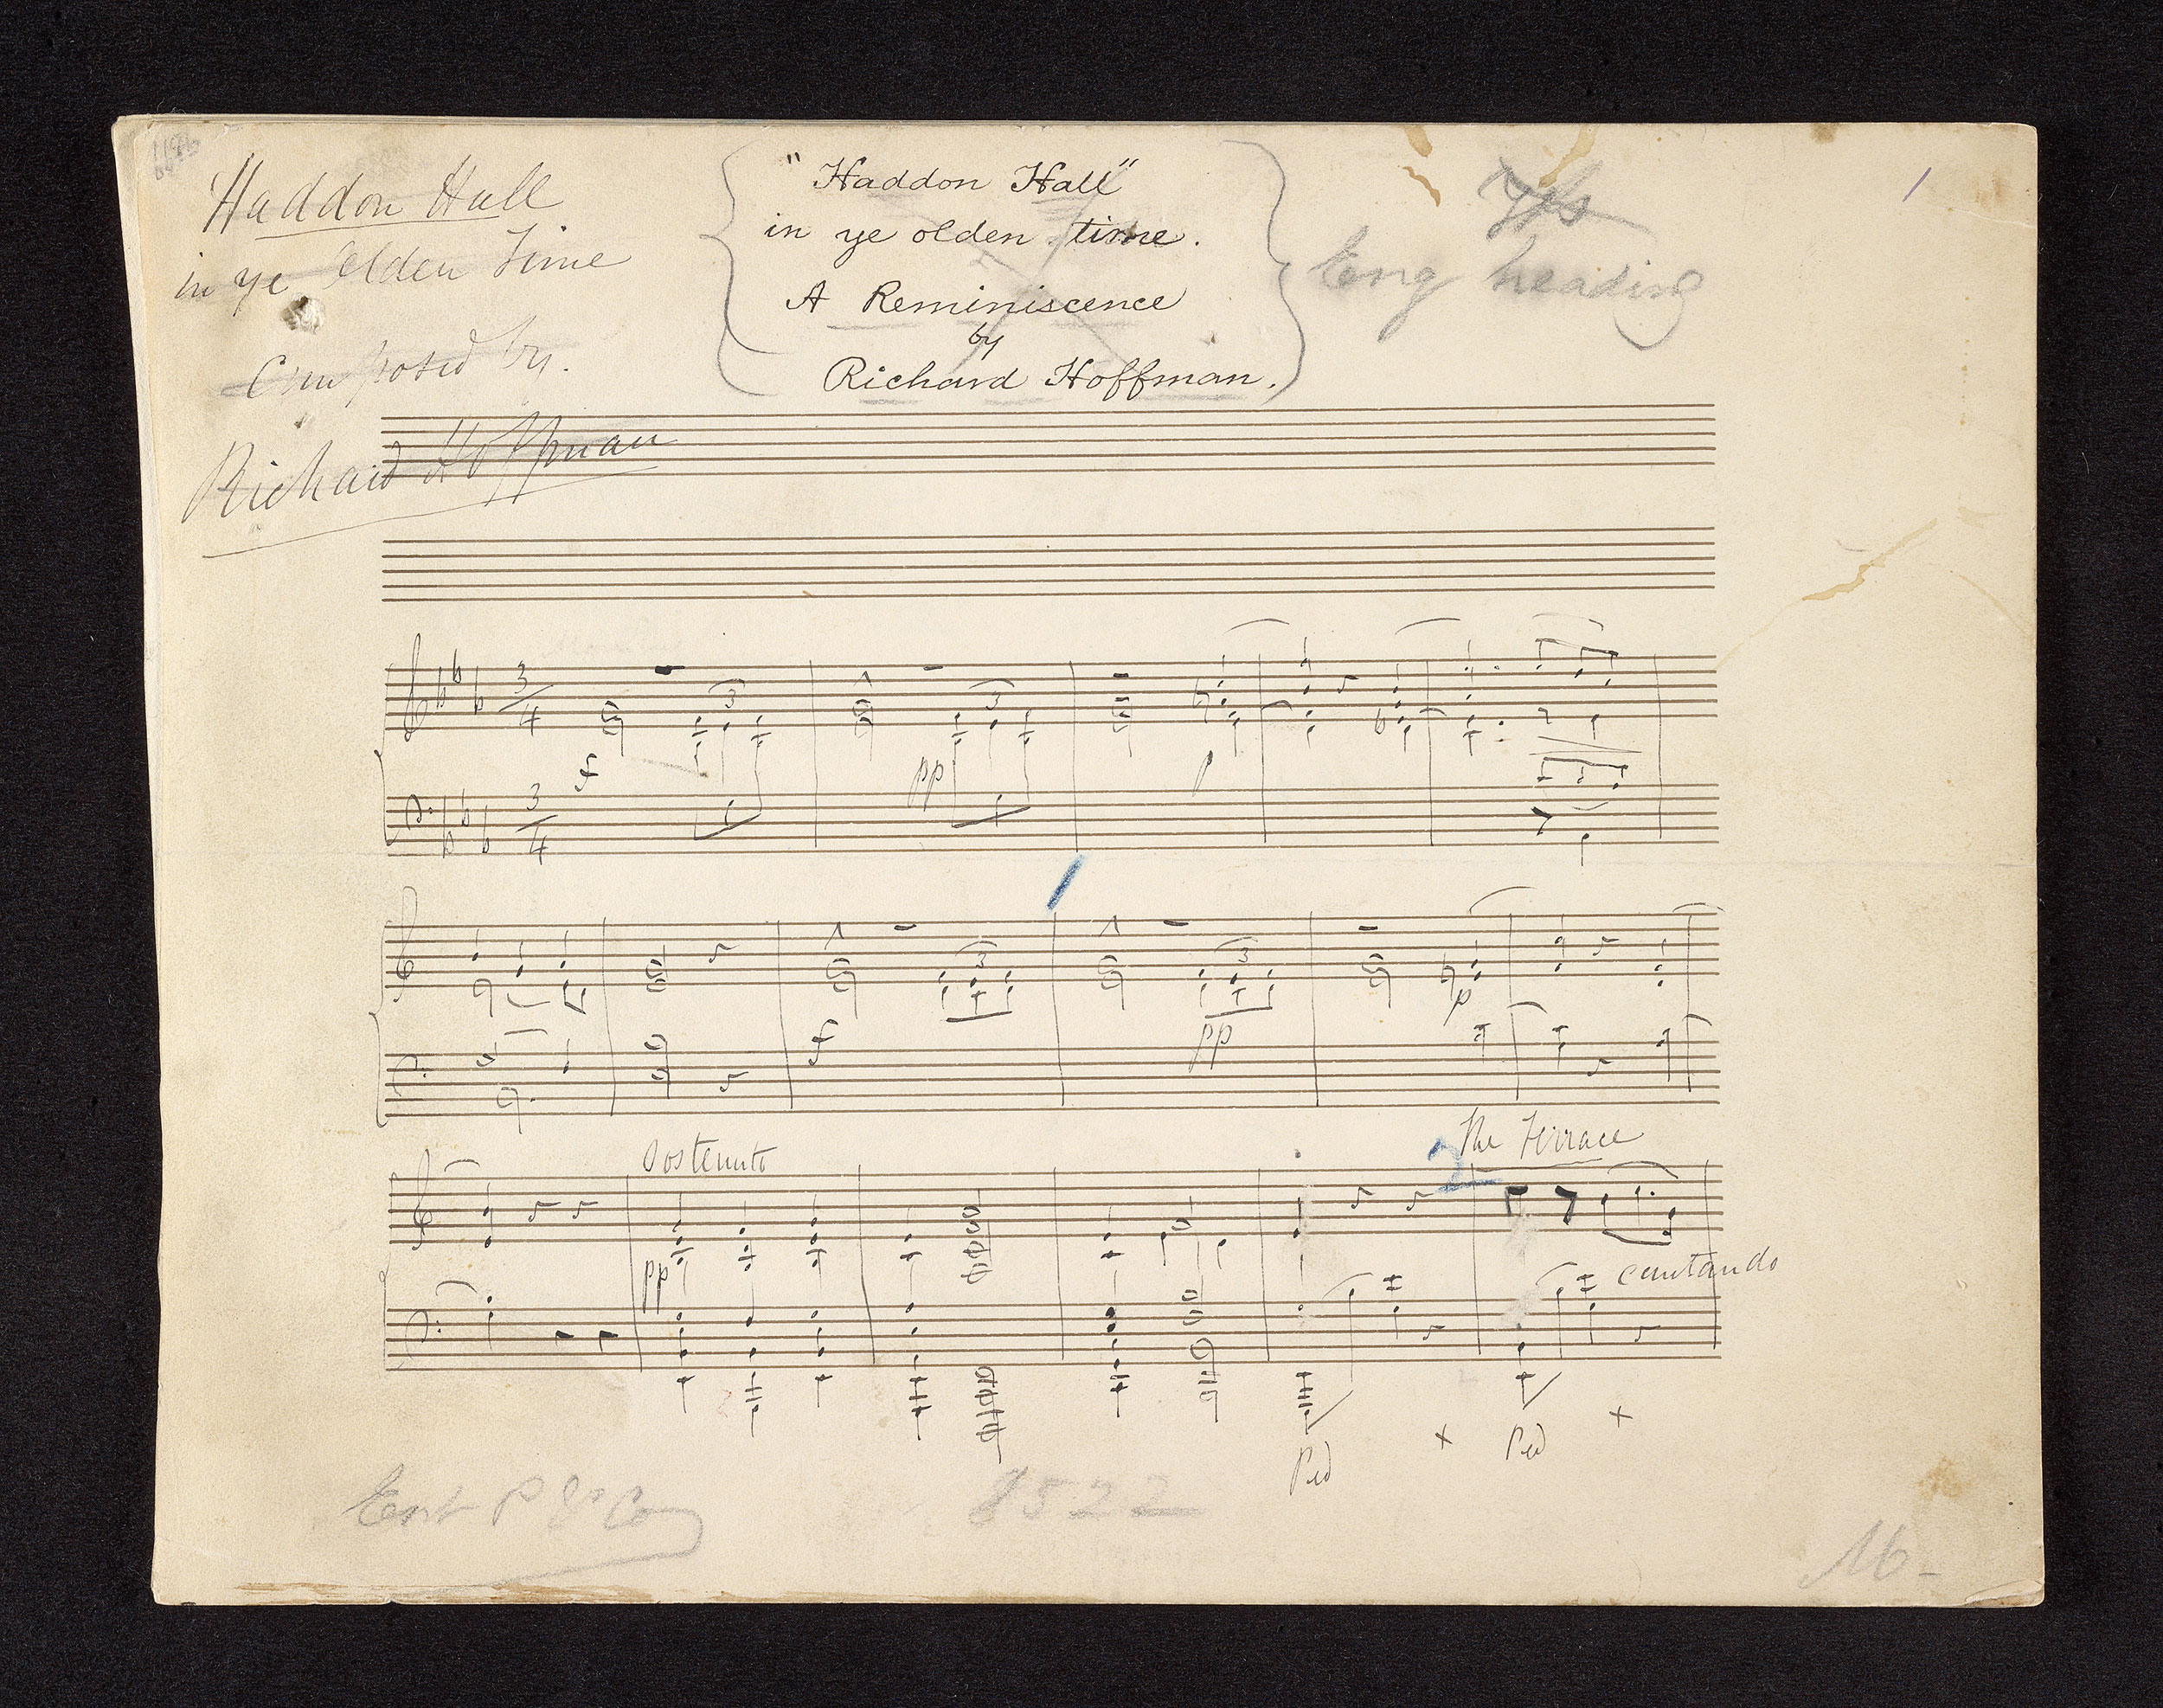 Haddon Hall
in ye olden Time
Composed by.
Richard Hoffman
"Haddon Hall"
in ye olden time.
A Reminiscence
by
Richard Hoffman.
Eng heading
1
3/4
3
3
f
pp
p
3/4
1
3
3
p
f
pp
Sostenuto
2
The Terrace
pp
cantando
Ped
+
Ped
+
8522
16-